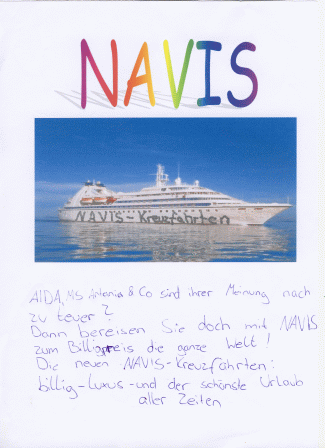 NAVIS
NAVIS-Kreuzfahrten
AIDA, MS Artania & Co sind ihrer Meinung nach
zu teuer?
Dann bereisen Sie doch mit NAVIS
zum Billigpreis die ganze Welt!
Die neuen NAVIS-Kreuzfahrten:
billig-Luxus-und der schönste Urlaub
aller Zeiten